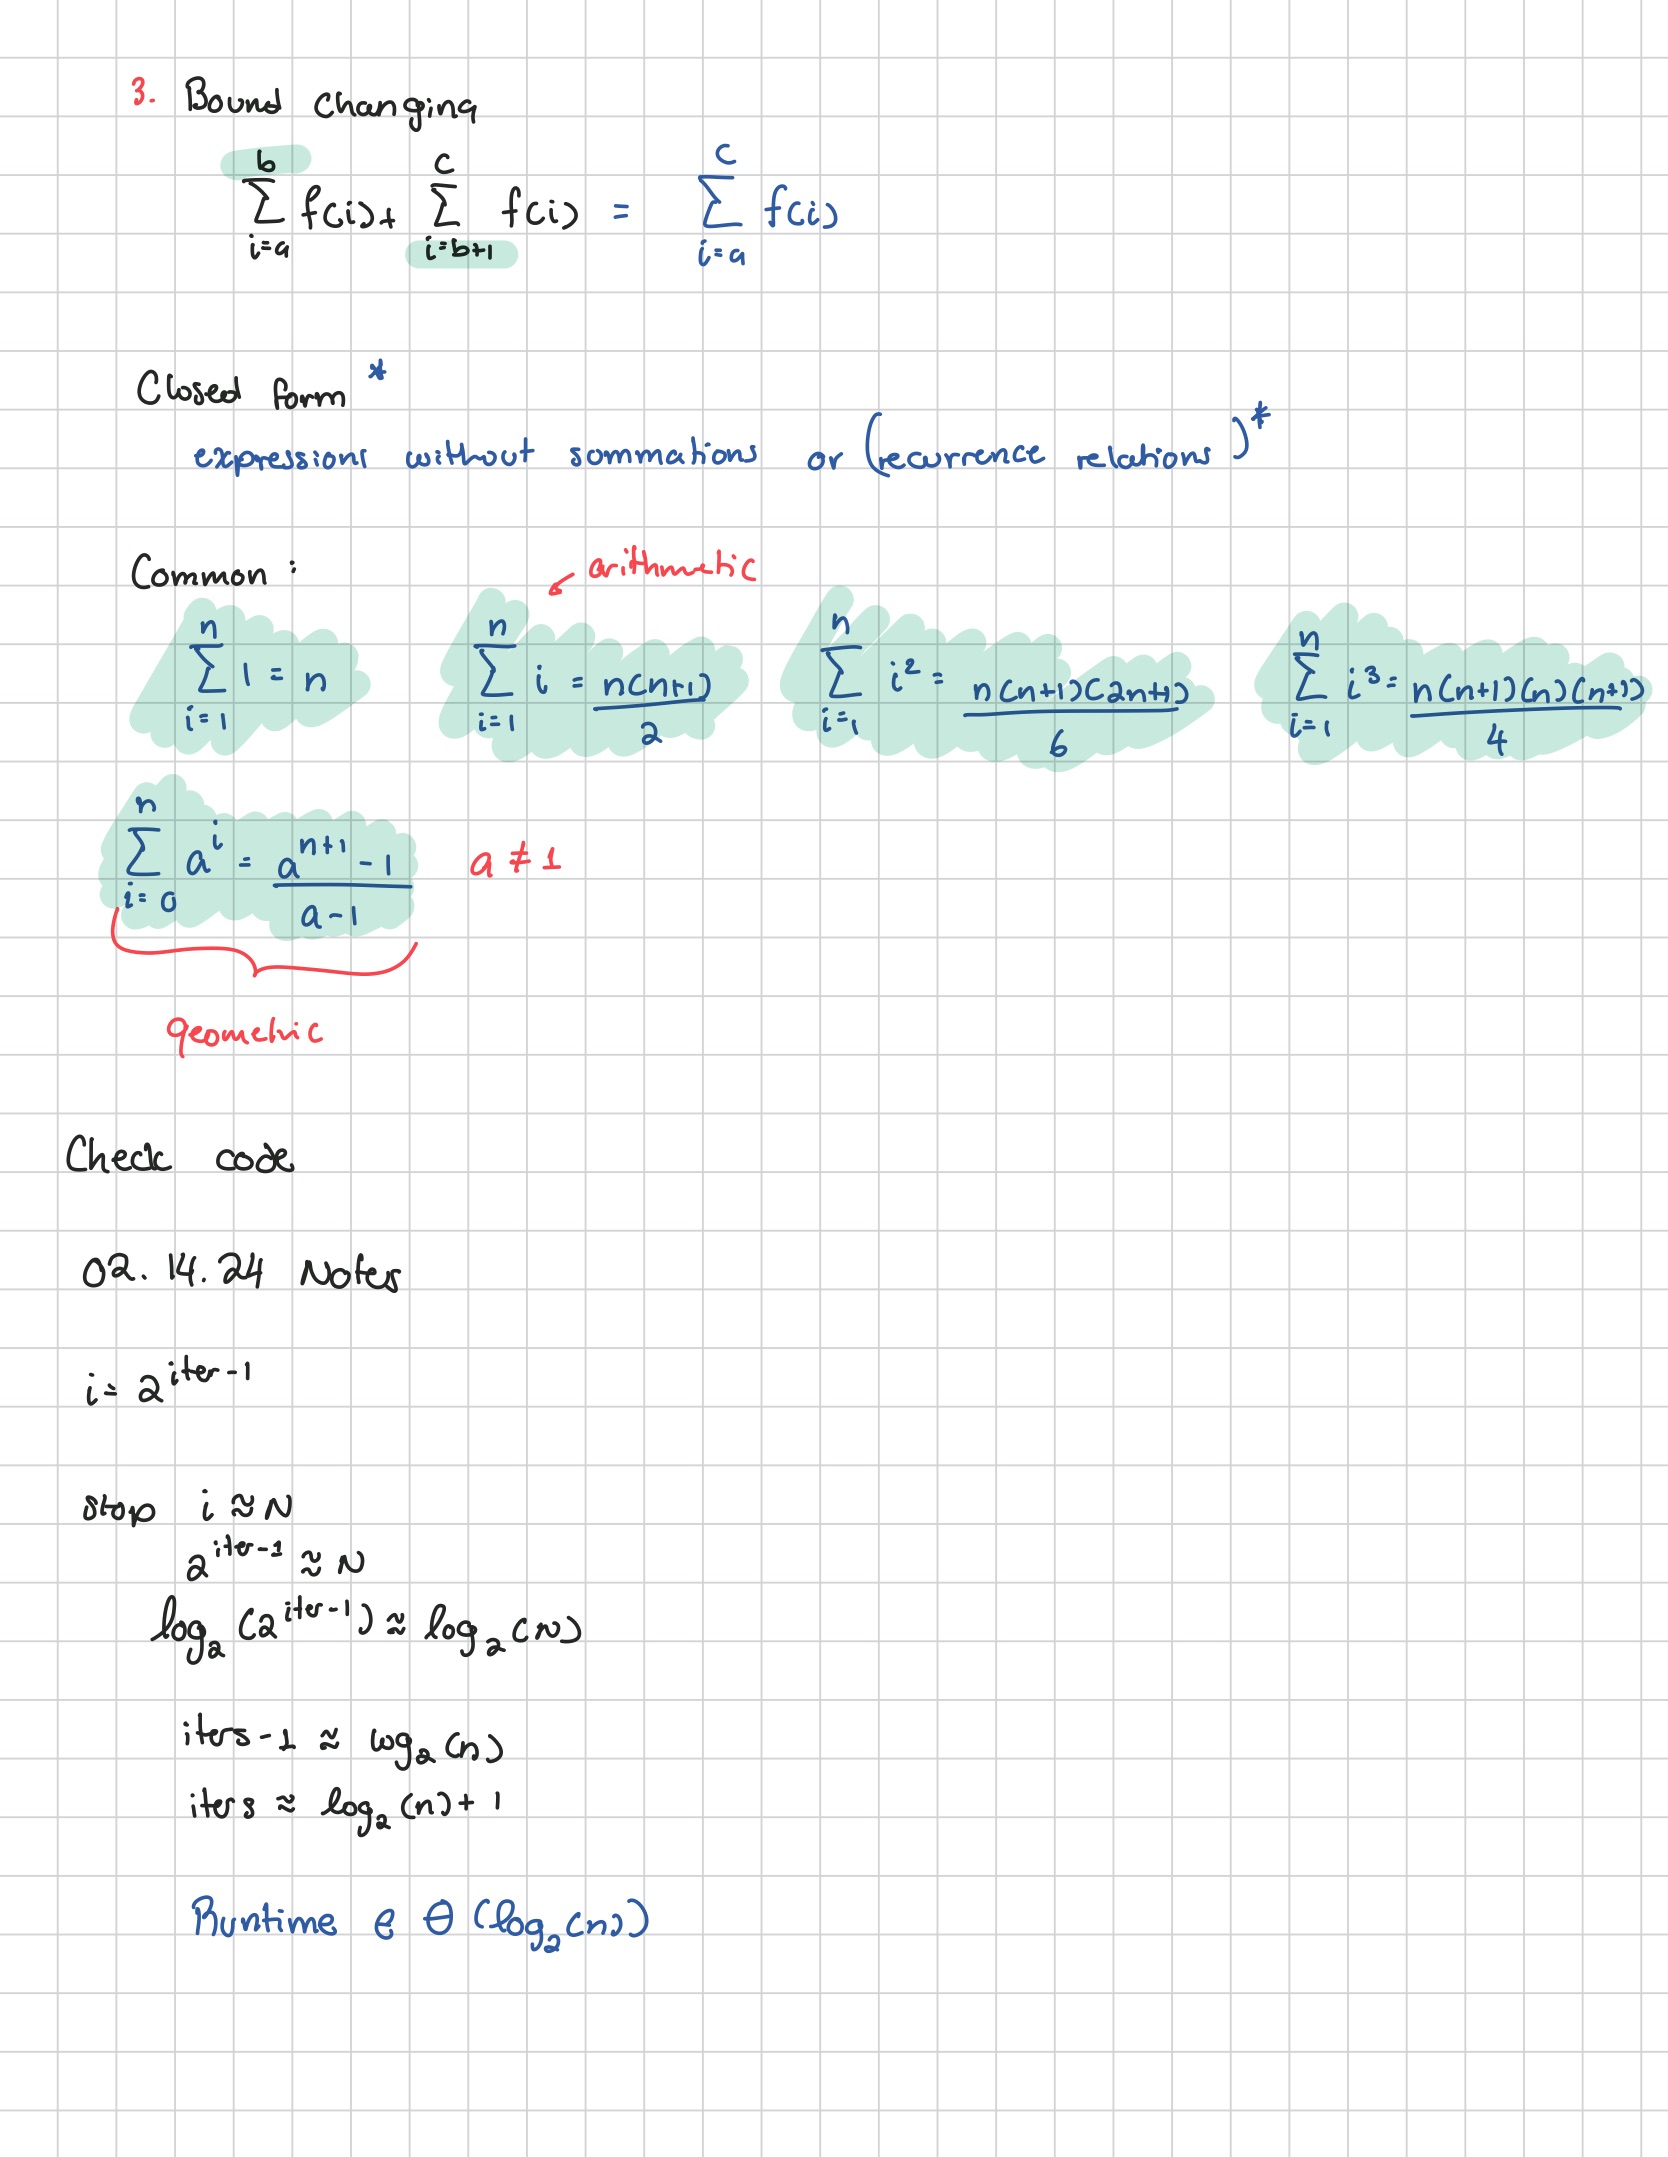 3. Bound Changing
\sum_{i=a}^{b} f(i) + \sum_{i=b+1}^{c} f(i) = \sum_{i=a}^{c} f(i)
Closed form *
expressions without sommations or (recurrence relations)*
Common:
arithmetic
\sum_{i=1}^{n} 1 = n
\sum_{i=1}^{n} i = \frac{n(n+1)}{2}
\sum_{i=1}^{n} i^2 = \frac{n(n+1)(2n+1)}{6}
\sum_{i=1}^{n} i^3 = \frac{n(n+1)(n)(n+1)}{4}
\sum_{i=0}^{n} a^i = \frac{a^{n+1} - 1}{a - 1} a ≠ 1
geometric
Check code
02.14.24 Notes
i = 2^{iter-1}
stop i ≈ N
2^{iter-1} ≈ N
log_2 (2^{iter-1}) ≈ log_2 (N)
iters-1 ≈ log_2 (n)
iters ≈ log_2 (n) + 1
Runtime ∈ Θ (log_2 (n))